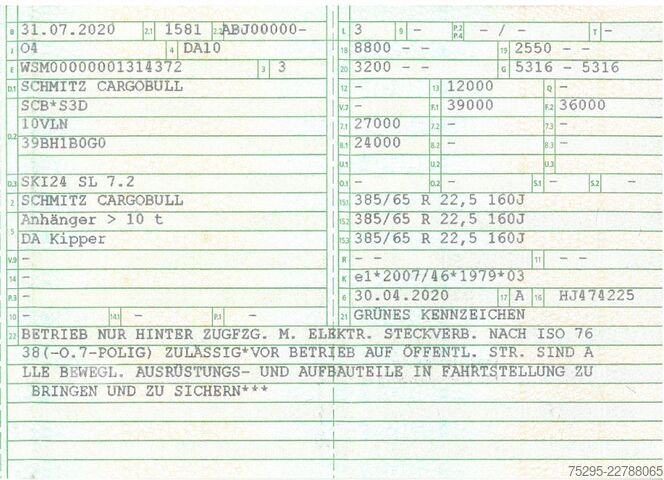 B 31.07.2020 2.1 1581 2.2 ABJ00000- L 3 9 - P.2 P.4 - / - T -
J 04 4 DA10 18 8800 - - 19 2550 - -
E WSM00000001314372 3 3 20 3200 - - G 5316 - 5316
D.1 SCHMITZ CARGOBULL 12 - 13 12000 Q -
SCB*S3D V.7 - F.1 39000 F.2 36000
D.2 10VLN 7.1 27000 7.2 - 7.3 -
39BH1B0G0 8.1 24000 8.2 - 8.3 -
U.1 - U.2 - U.3
D.3 SKI24 SL 7.2 O.1 - O.2 - S.1 - S.2 -
2 SCHMITZ CARGOBULL 15.1 385/65 R 22,5 160J
5 Anhänger > 10 t 15.2 385/65 R 22,5 160J
DA Kipper 15.3 385/65 R 22,5 160J
V.9 - R - - 11 - -
14 - K e1*2007/46*1979*03
P.3 - 6 30.04.2020 17 A 16 HJ474225
10 - 14.1 - P.1 - 21 GRÜNES KENNZEICHEN
22 BETRIEB NUR HINTER ZUGFZG. M. ELEKTR. STECKVERB. NACH ISO 76
38(-O.7-POLIG) ZULÄSSIG*VOR BETRIEB AUF ÖFFENTL. STR. SIND A
LLE BEWEGL. AUSRÜSTUNGS- UND AUFBAUTEILE IN FAHRTSTELLUNG ZU
BRINGEN UND ZU SICHERN***
75295-22788065